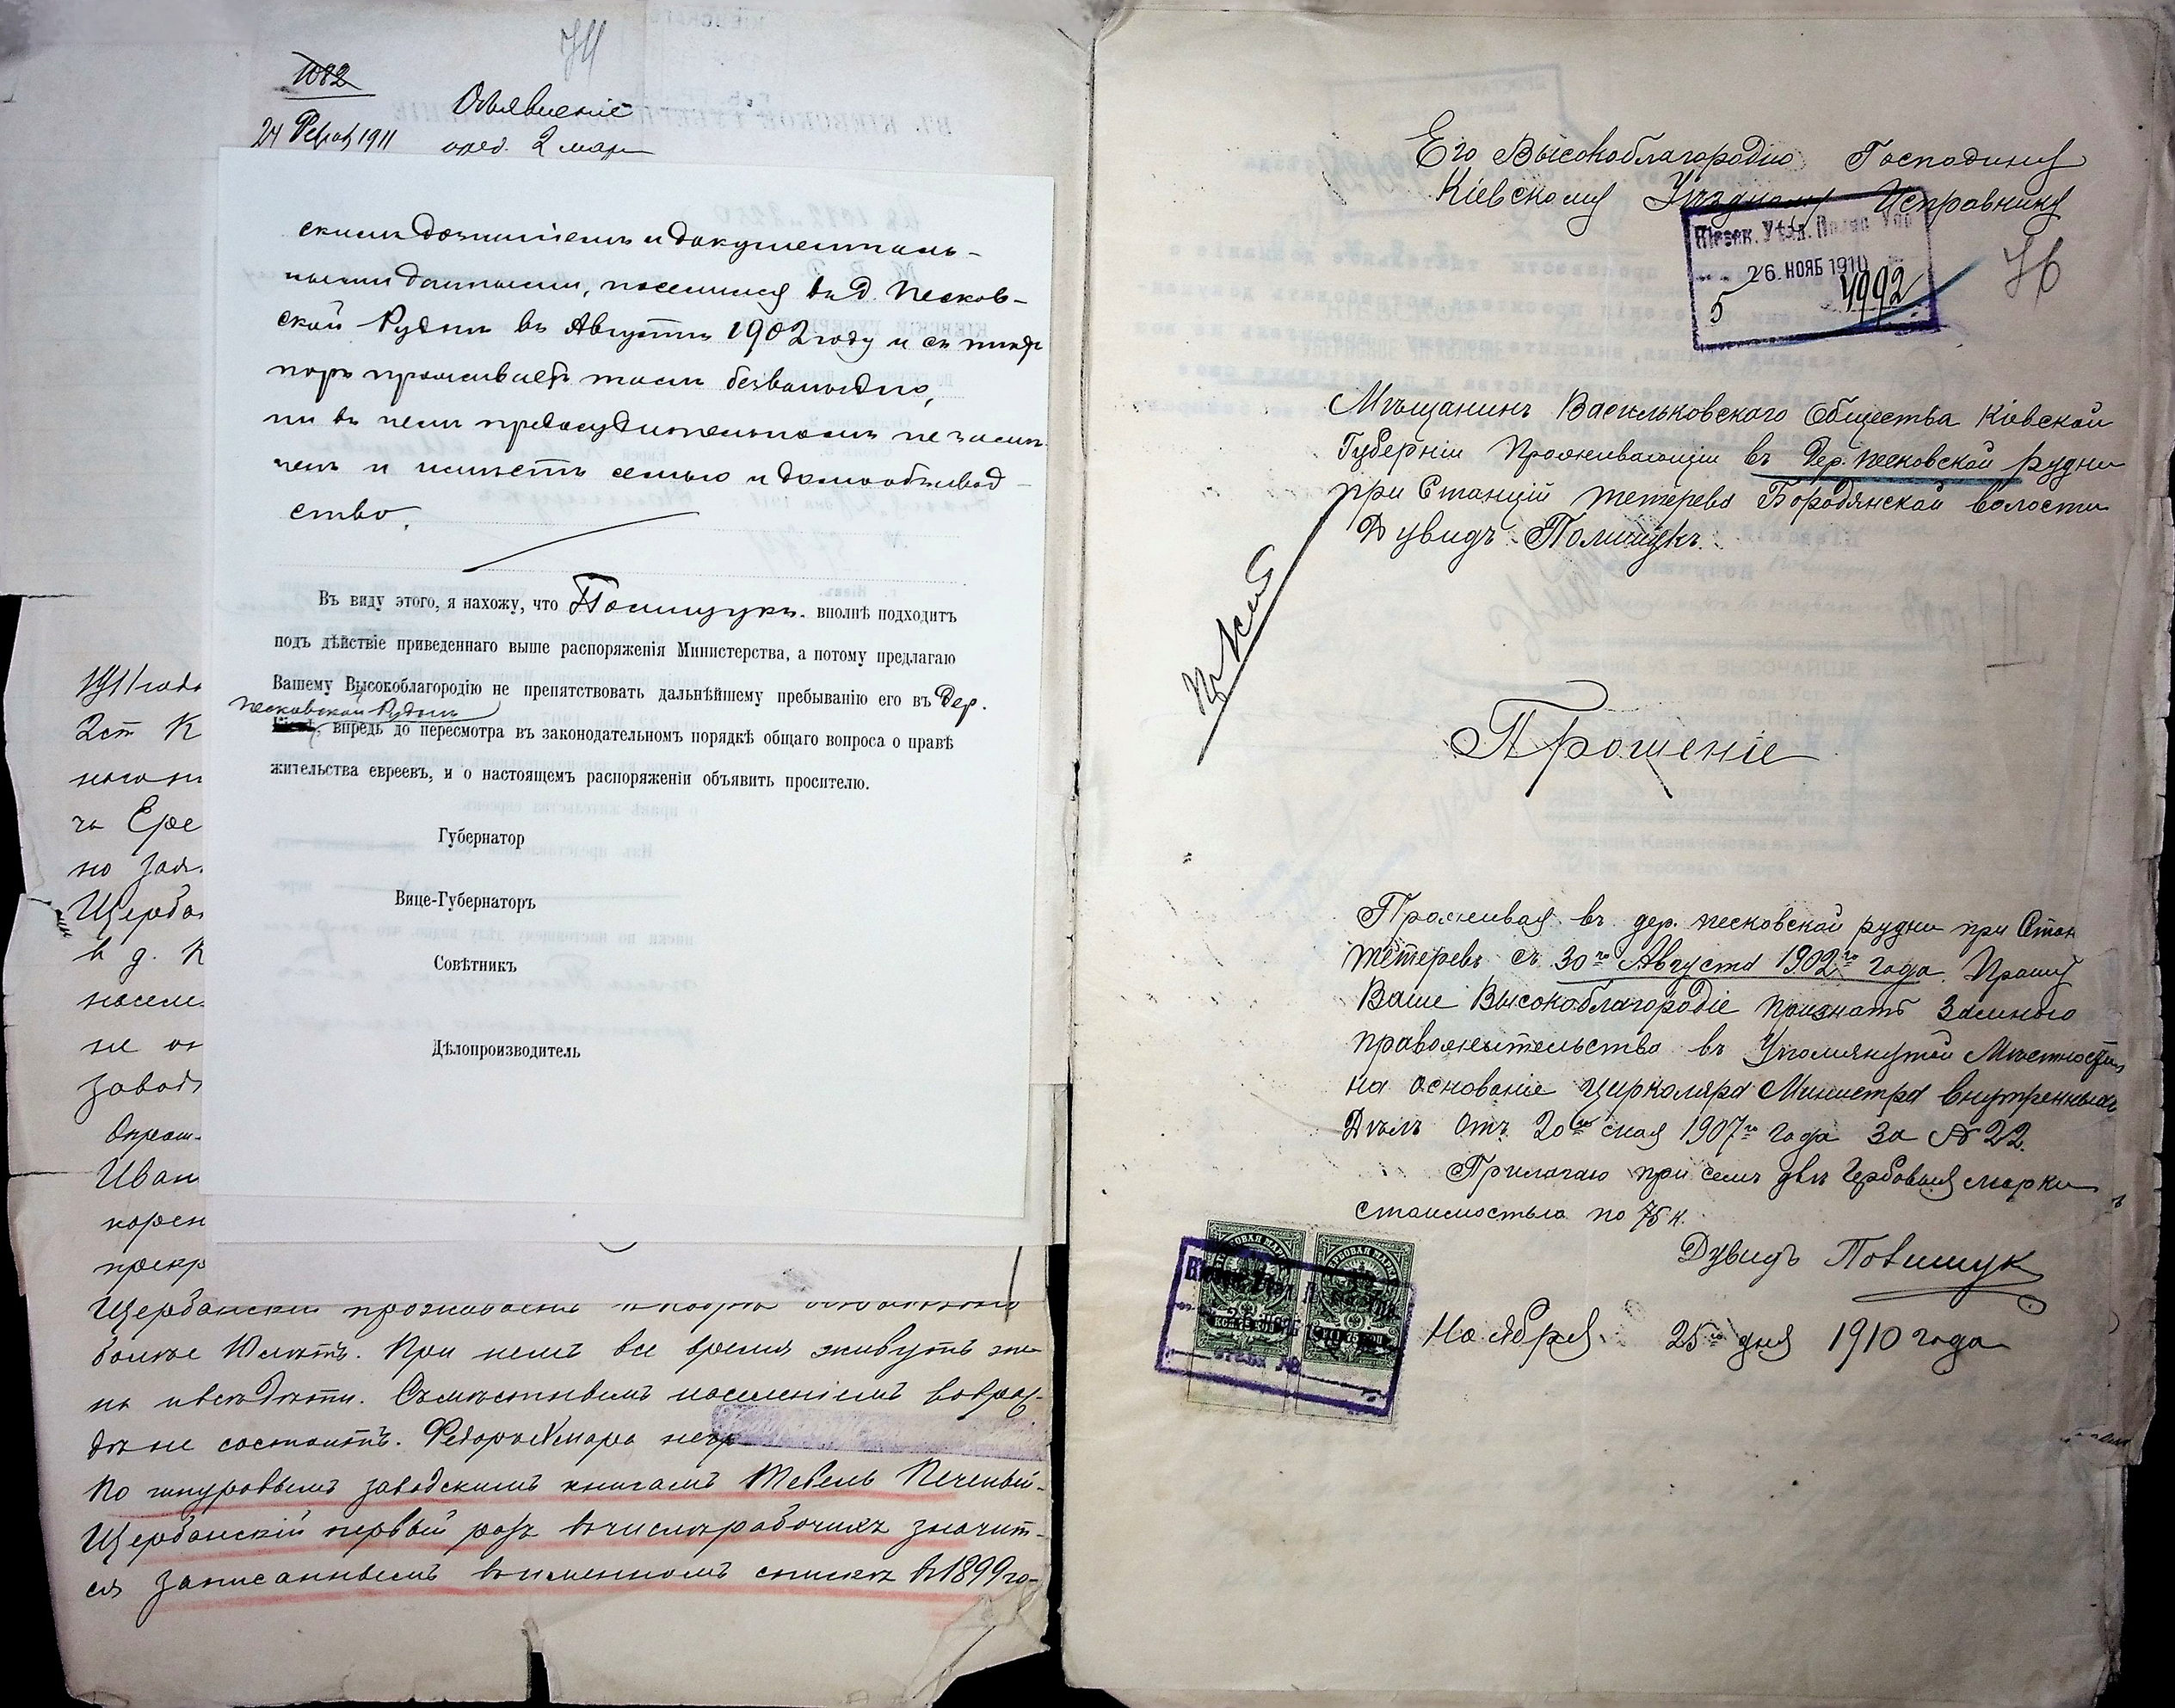 74
1082
24 Февр 1911
Объявленіе
опред. 2 мар
скимъ дознаніемъ и документаль-
ными данными, поселился въ д. Песков-
ской Руднѣ въ Августѣ 1902 году и съ тѣхъ
поръ проживаетъ тамъ безвыѣздно,
ни въ чемъ предосудительномъ не замѣ-
ченъ и имѣетъ семью и домообзавод-
ство.
Въ виду этого, я нахожу, что Полищукъ вполнѣ подходитъ
подъ дѣйствіе приведеннаго выше распоряженія Министерства, а потому предлагаю
Вашему Высокоблагородію не препятствовать дальнѣйшему пребыванію его въ дер.
Песковской Руднѣ
впредь до пересмотра въ законодательномъ порядкѣ общаго вопроса о правѣ
жительства евреевъ, и о настоящемъ распоряженіи объявить просителю.
Губернаторъ
Вице-Губернаторъ
Совѣтникъ
Дѣлопроизводитель
1911 года
2ст К
наго
ча Ере
но зая
Щерба
въ д. К
населе
не
завод
Опрош
Иван
корен
прекр
Щербанскій проживаетъ
болѣе 10 лѣтъ. При немъ все время живутъ же-
на и всѣ дѣти. Съ мѣстнымъ населеніемъ во враж-
дѣ не состоитъ. Федоръ Кмара негр
По шнуровымъ заводскимъ книгамъ Тевель Печеный-
Щербанскій первый разъ въ числѣ рабочихъ значит-
ся записаннымъ въ именномъ спискѣ въ 1899 го-
Его Высокоблагородію Господину
Кіевскому Уѣздному Исправнику
Кіевск. Уѣзд. Полиц. Упр
26. НОЯБ 1910
5 4992
76
Мѣщанинъ Васильковского Общества Кіевской
Губерніи Проживающій въ Дер. Песковской рудни
при Станціи Тетеревъ Бородянской волости
Дувидъ Полищукъ.
Прошеніе
Проживая въ дер. Песковской рудни при Стан
Тетеревъ съ 30го Августа 1902го года. Прошу
Ваше Высокоблагородіе признать за мною
правожительство въ Упомянутой Мѣстности
на основаніе циркуляра Министра внутренныхъ
Дѣлъ отъ 20го мая 1907го года за № 22.
Прилагаю при семъ двѣ гербовыя марки
стоимостью по 75 к.
Дувидъ Полищук
Ноября 25го дня 1910 года